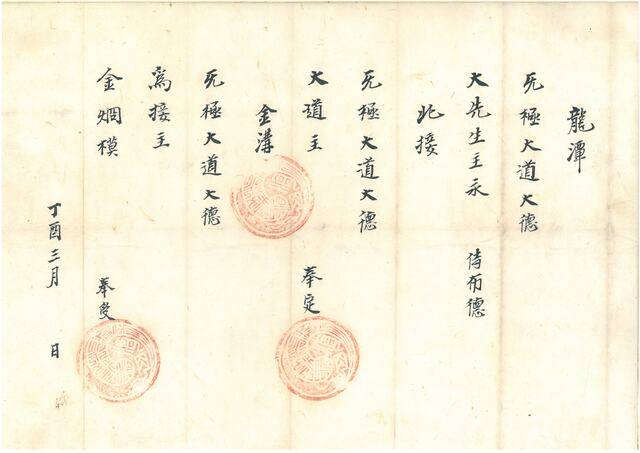 龍潭
无極大道大德
大先生主永 侍布德
北接
无極大道大德
大道主 奉定
金溝
无極大道大德
為接主
金炯模 奉受
丁酉三月 日